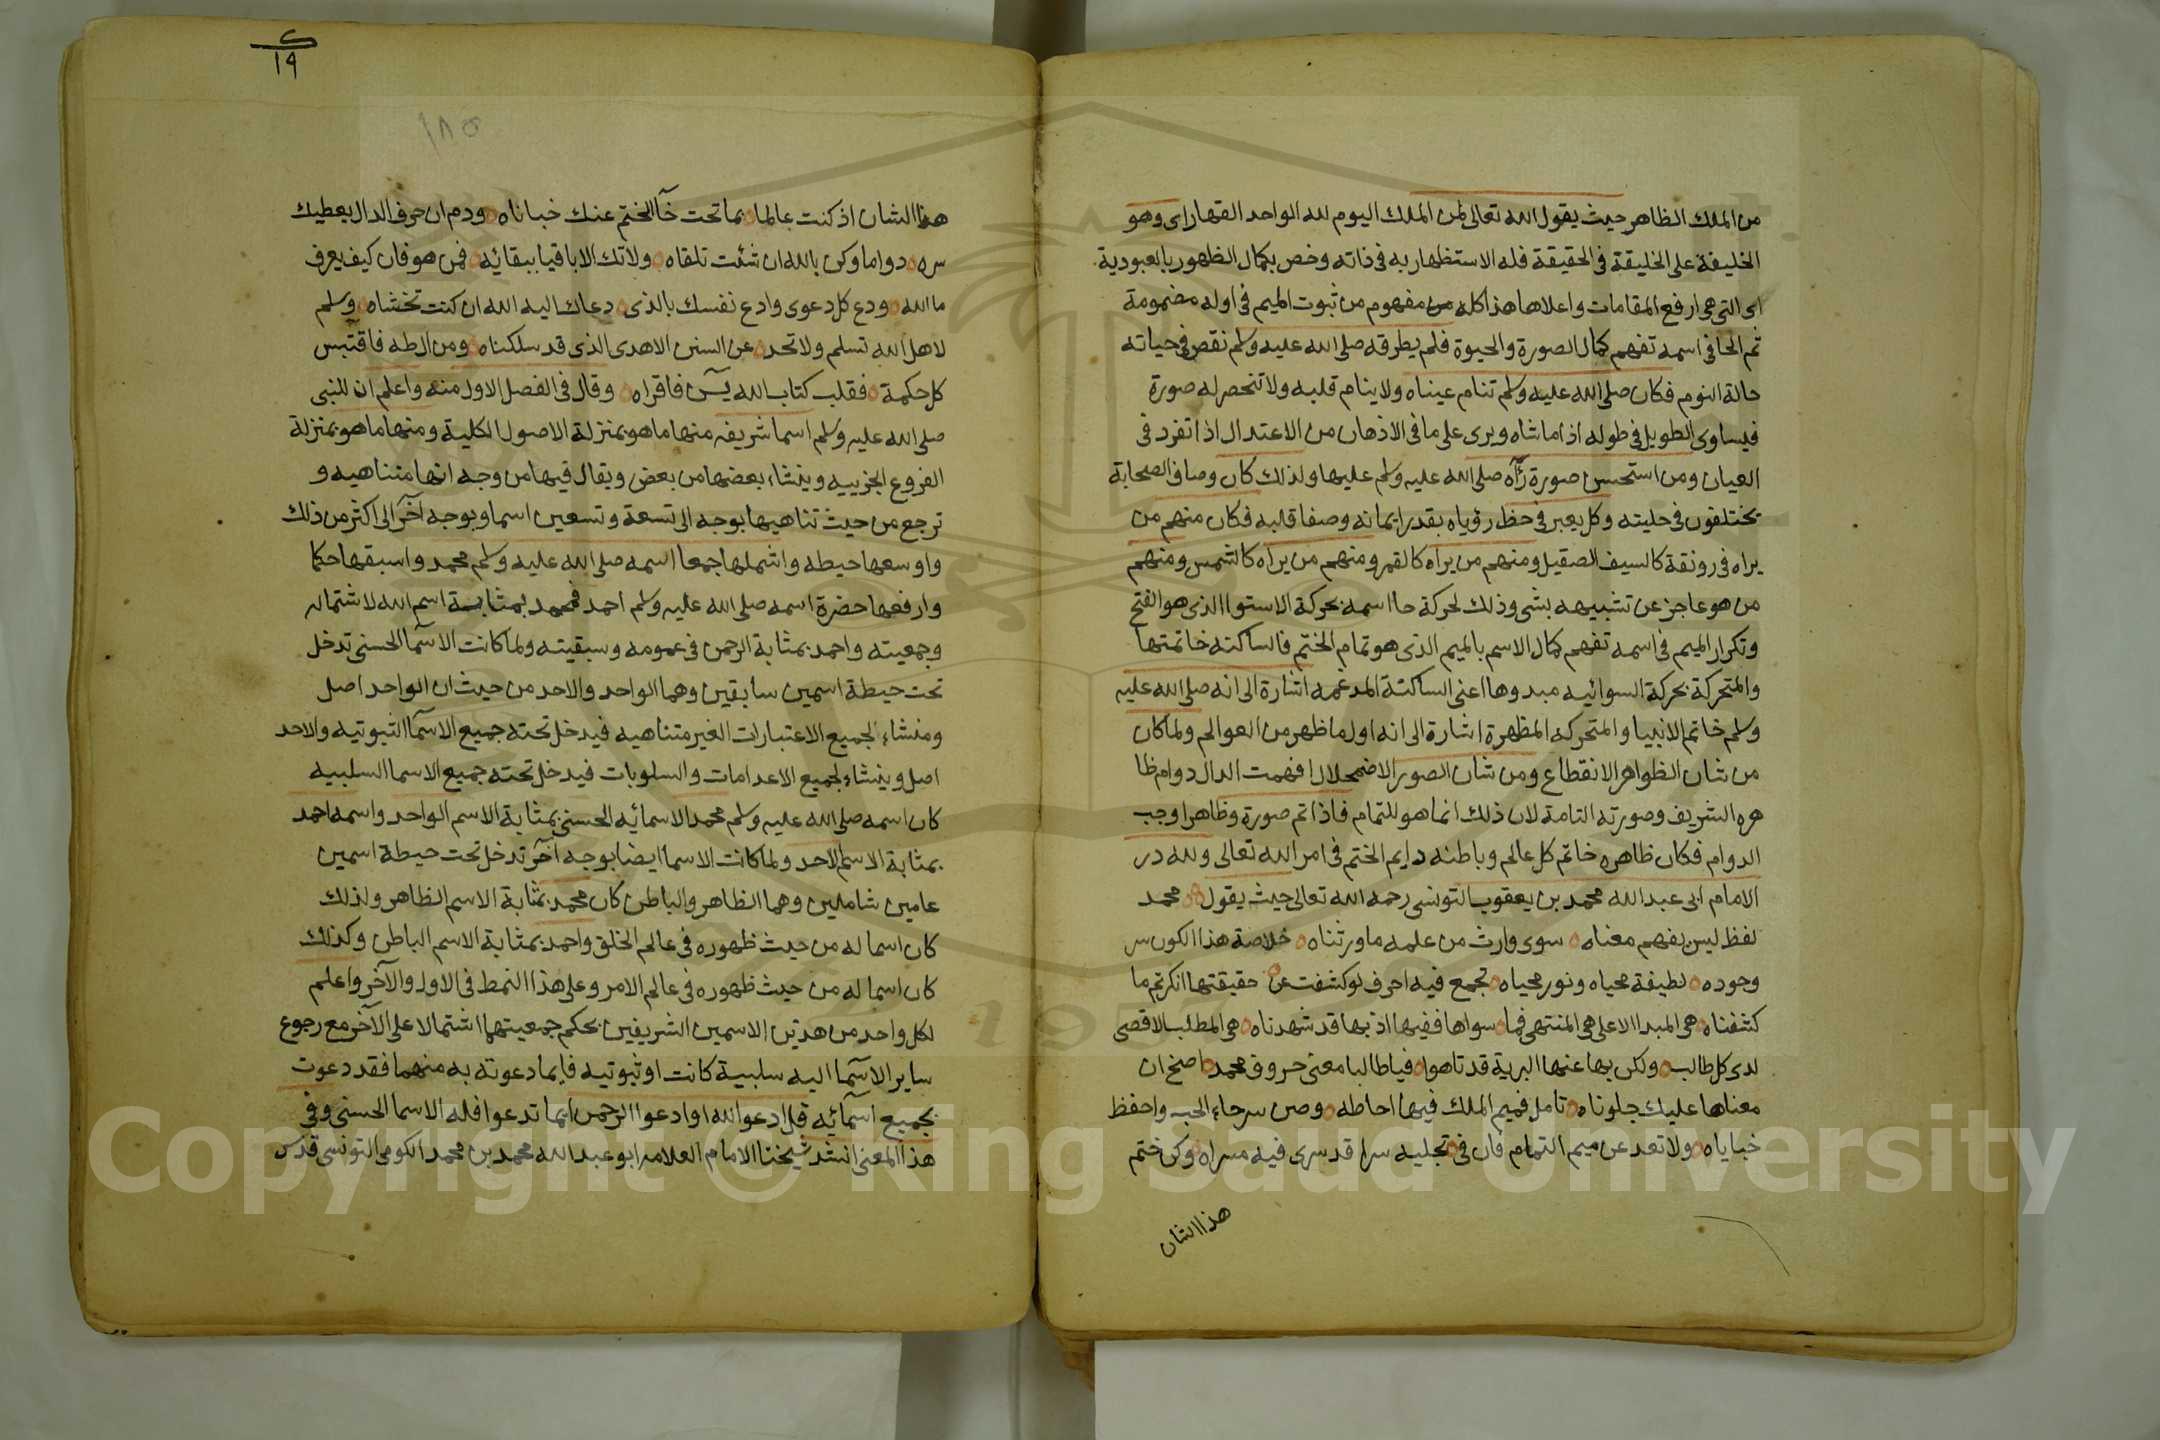 من الملك الظاهر حيث يقول الله تعالى لمن الملك اليوم لله الواحد القهار اى وهو
الخليفة على الخليقة فى الحقيقة فله الاستظهار به فى ذاته وخص بكمال الظهور بالعبودية
اى التى هى ارفع المقامات واعلاها هذا كله من مفهوم من ثبوت الميم فى اوله مضمومة
ثم الحا فى اسمه تفهم كمال الصورة والحيوة فلم يطرقه صلى الله عليه وسلم نقص فى حياته
حالة النوم فكان صلى الله عليه وسلم تنام عيناه ولا ينام قلبه ولا تنحصر له صورة
فيساوى الطويل فى طوله اذا ماشاه ويرى على ما فى الاذهان من الاعتدال اذا تفرد فى
العيان ومن استحسن صورة رآه صلى الله عليه وسلم عليها ولذلك كان وصافا الصحابة
يختلفون فى حليته وكل يعبر فى حظ رؤياه بقدر ايمانه وصفا قلبه فكان منهم من
يراه فى رونقة كالسيف الصقيل ومنهم من يراه كالقمر ومنهم من يراه كالشمس ومنهم
من هو عاجز عن تشبيهه بشى وذلك لحركة حا اسمه بحركة الاستوا الذى هو الفتح
وتكرار الميم فى اسمه تفهم كمال الاسم بالميم الذى هو تمام الختم فالساكنه خاتمتها
والمتحركة بحركة السوائيه مبدوها اعنى الساكنة المدغمه اشارة الى انه صلى الله عليه
وسلم خاتم الانبيا والمتحركه المظهرة اشارة الى انه اول ما ظهر من العوالم ولما كان
من شان الظواهر الانقطاع ومن شان الصور الاضمحلال افهمت الدال دوام ظا
هره الشريف وصورته التامة لان ذلك انما هو للتمام فاذا تم صورة وظاهرا وجب
الدوام فكان ظاهره خاتم كل عالم وباطنه دايم الختم فى امر الله تعالى ولله در
الامام ابى عبد الله محمد بن يعقوب التونسى رحمه الله تعالى حيث يقول محمد
لفظ ليس يفهم معناه سوى وارث من علمه ما ورثناه خلاصة هذا الكون سر
وجوده لطيفة محياه ونور محياه تجمع فيه احرف لو كشفت عن حقيقتها انكرتم ما
كشفناه هى المبدا الاعلى هى المنتهى فما سواها ففيها اذ بها قد شهدناه هى المطلب الاقصى
لدى كل طالب ولكن بها عنها البرية قد تاهوا فيا طالبا معنى حروف محمد اصخ ان
معناها عليك جلوناه تامل فميم الملك فيها احاطه وصن سر حاء الحب واحفظ
خباياه ولا تعد عن ميم التمام فان فى تجليه سرا قد سرى فيه مسراه وكن ختم
هذا الشان
١٩
١٨٥
هذا الشان اذ كنت عالما بما تحت خآ الختم عنك خباناه ودم ان حرف الدال يعطيك
سره دواما وكن بالله ان شئت تلقاه ولا تك الا باقيا ببقائه فمن هو فان كيف يعرف
ما الله ودع كل دعوى وادع نفسك بالذى دعاك اليه الله ان كنت تخشاه وسلم
لاهل الله تسلم ولا تحد عن السنن الاهدى الذى قد سلكناه ومن ال طه فاقتبس
كل حكمة فقلب كتاب الله يس فاقراه وقال فى الفصل الاول منه واعلم ان للنبى
صلى الله عليه وسلم اسما شريفه منها ما هو بمنزلة الاصول الكلية ومنها ما هو بمنزلة
الفروع الجزييه وينشاء بعضها من بعض ويقال فيها من وجه انها متناهيه و
ترجع من حيث تناهيها بوجه الى تسعة وتسعين اسما وبوجه آخر الى اكثر من ذلك
واوسعها حيطه واشملها جمعا اسمه صلى الله عليه وسلم محمد واسبقها حكما
وارفعها حضرة اسمه صلى الله عليه وسلم احمد فمحمد بمثابة اسم الله لاشتماله
وجمعيته واحمد بمثابة الرحمن فى عمومه وسبقيته ولما كانت الاسما الحسنى تدخل
تحت حيطة اسمين سابقين وهما الواحد والاحد من حيث ان الواحد اصل
ومنشاء لجميع الاعتبارات الغير متناهيه فيدخل تحته جميع الاسما الثبوتيه والاحد
اصل وينشاء لجميع الاعدامات والسلوبات فيدخل تحته جميع الاسما السلبيه
كان اسمه صلى الله عليه وسلم محمد الاسمائه الحسنى بمثابة الاسم الواحد واسمه احمد
بمثابة الاسم الاحد ولما كانت الاسما ايضا بوجه آخر تدخل تحت حيطة اسمين
عامين شاملين وهما الظاهر والباطن كان محمد بمثابة الاسم الظاهر ولذلك
كان اسما له من حيث ظهوره فى عالم الخلق واحمد بمثابة الاسم الباطن وكذلك
كان اسما له من حيث ظهوره فى عالم الامر وعلى هذا النمط فى الاول والآخر واعلم
لكل واحد من هذين الاسمين الشريفين بحكم جمعيتهما اشتمالا على الآخر مع رجوع
ساير الاسما اليه سلبية كانت او ثبوتيه فايما دعوته به منهما فقد دعوت
بجميع اسمآئه قل ادعوا الله او ادعوا الرحمن ايما تدعوا فله الاسما الحسنى وفى
هذا المعنى انشد شيخنا الامام العلامه ابو عبد الله محمد بن محمد الكومى التونسى قدس
Copyright © King Saud University